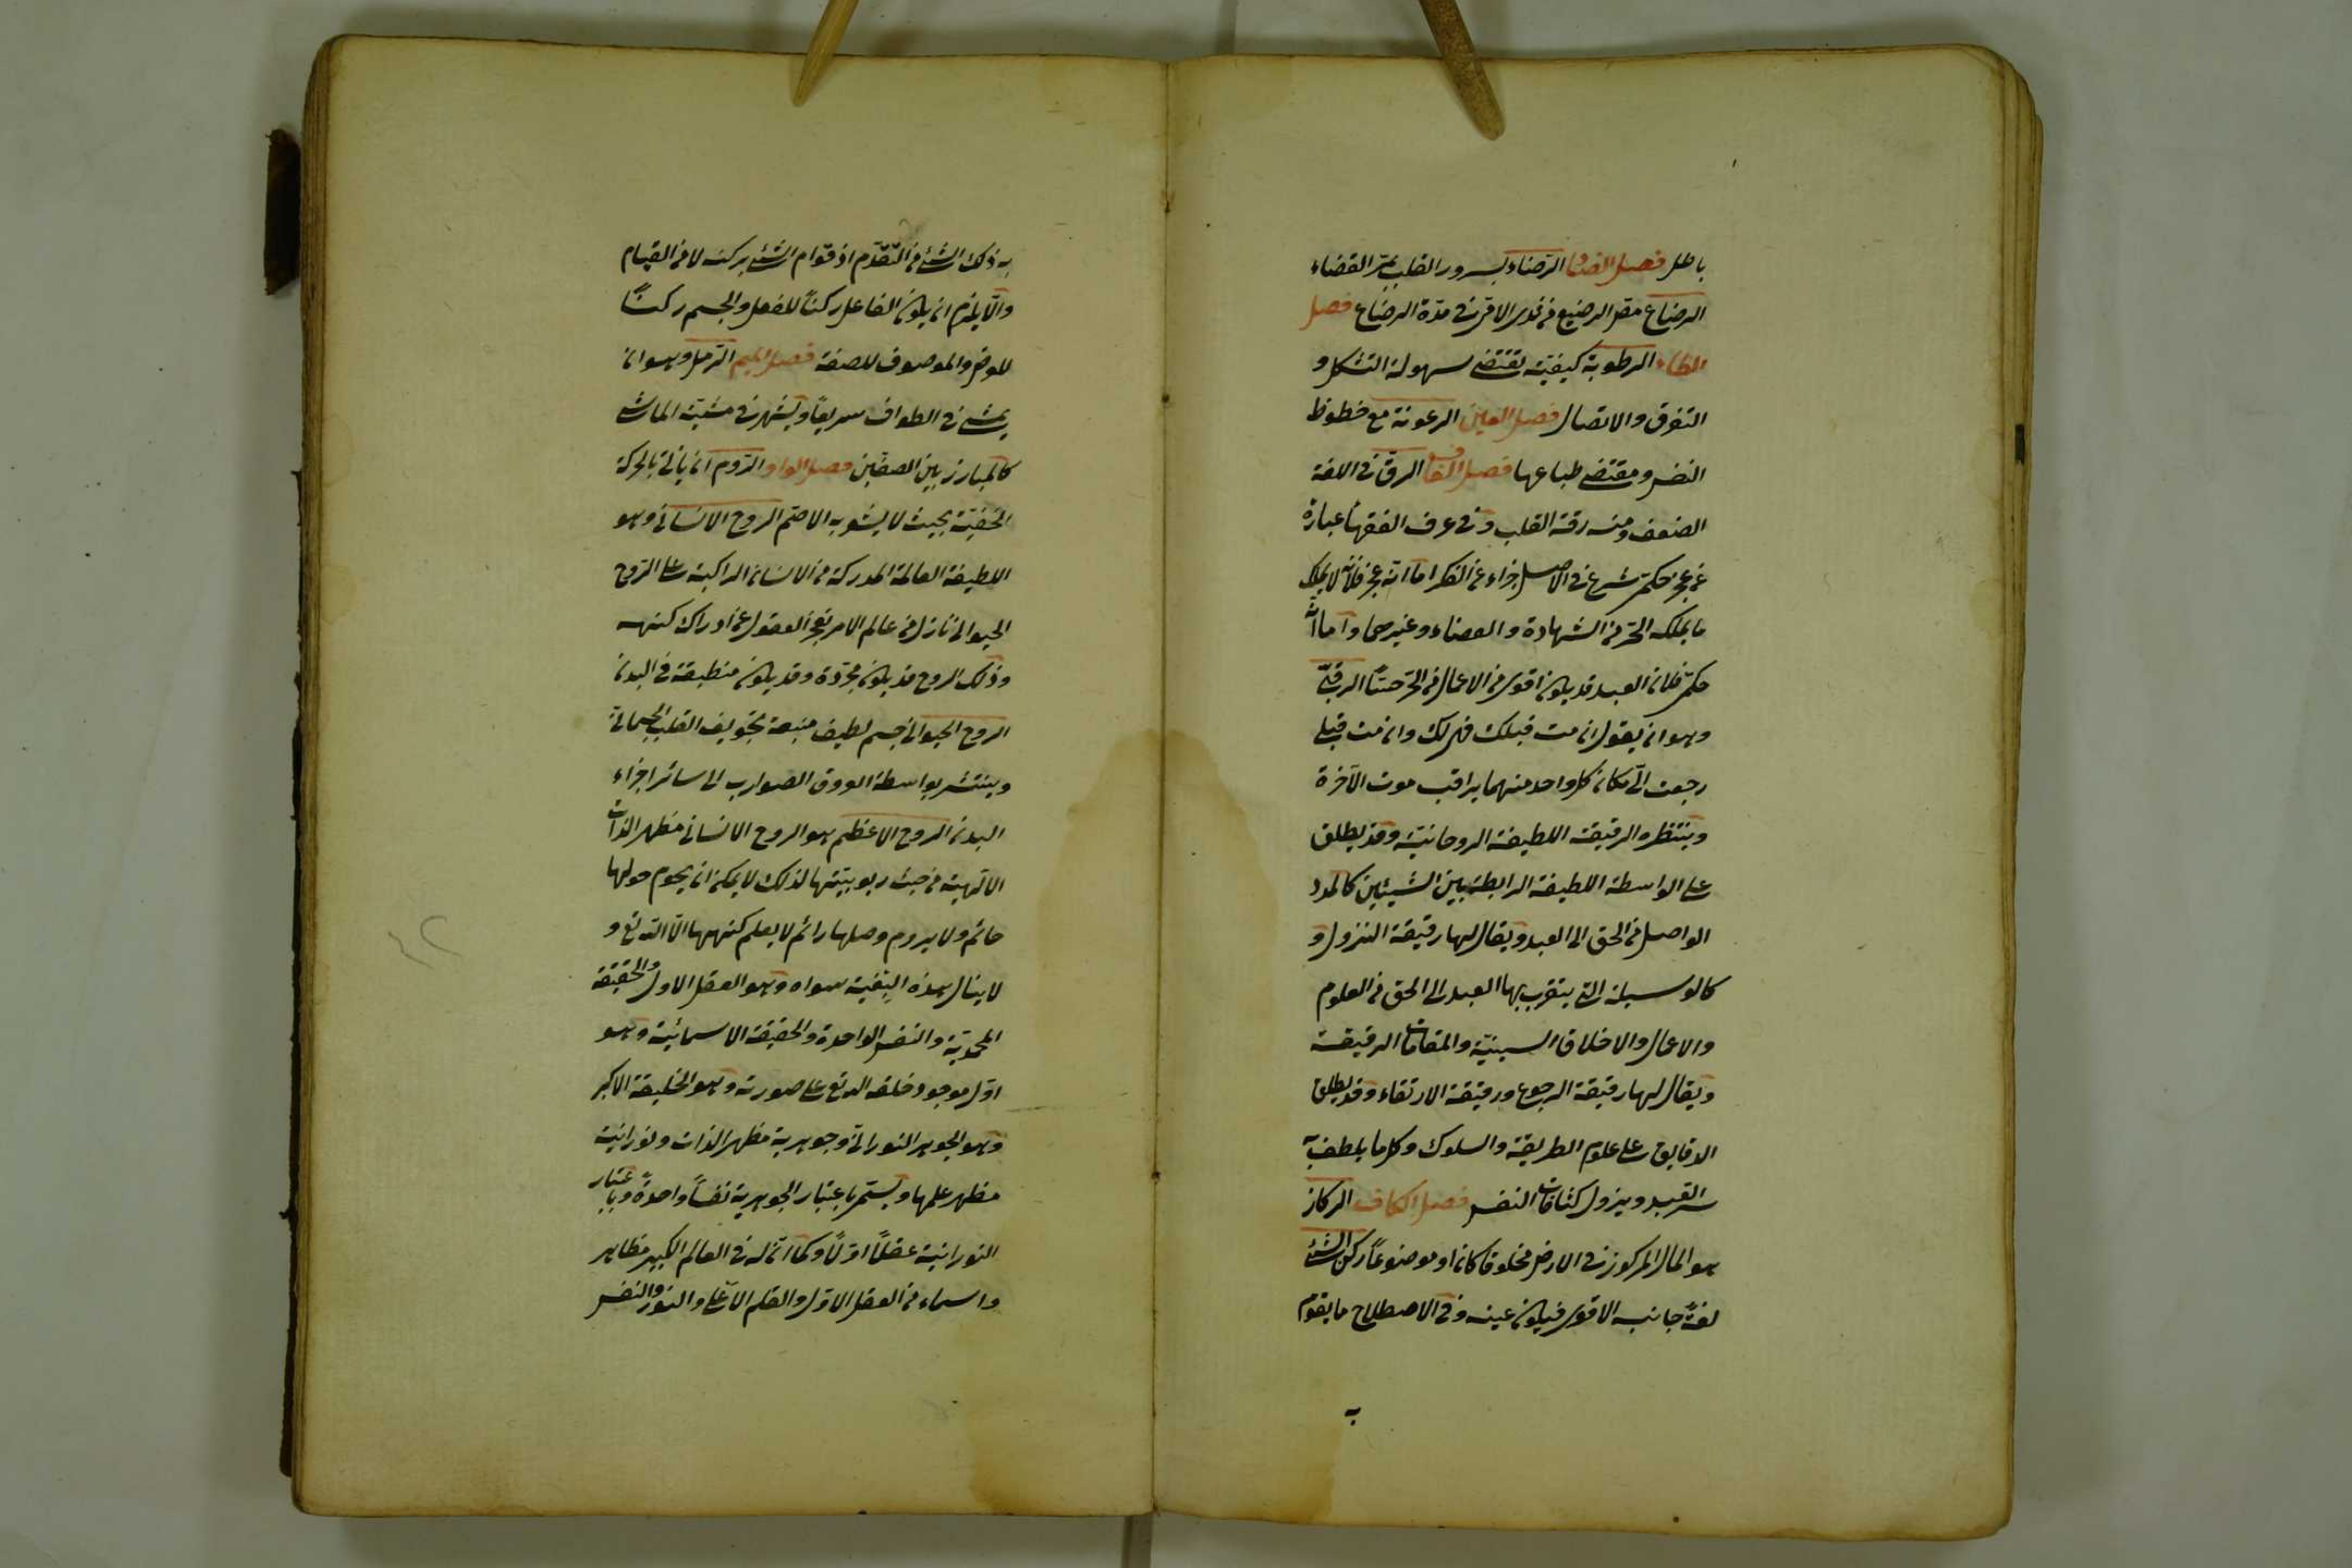 باطل فصل الضاد الرضاء سرور القلب بمر القضاء
الرضاع مص الرضيع من ثدى الآدمية فى مدة الرضاع فصل
الطاء الرطوبة كيفية تقتضى سهولة التشكل و
التفرق والاتصال فصل العين الرعونة مع حظوظ
النفس ومقتضى طباعها فصل القاف الرق فى اللغة
الضعف ومنه رقة القلب وفى عرف الفقهاء عبارة
عن عجز حكمى شرع فى الاصل جزاء عن الكفر اما انه عجز فلانه لا يملك
ما يملكه الحر من الشهادة والقضاء وغيرهما واما انه
حكمى فلان العبد قد يكون اقوى فى الاعمال من الحر حسا الرقبى
وهو ان يقول ان مت قبلك فهى لك وان مت قبلى
رجعت الى مكان كل واحد منهما يراقب موت الآخرة
وينتظره الرقيقة اللطيفة الروحانية وقد يطلق
على الواسطة اللطيفة الرابطة بين الشيئين كالمدد
الواصل من الحق الى العبد ويقال لها رقيقة النزول و
كالوسيلة التى يتقرب بها العبد الى الحق من العلوم
والاعمال والاخلاق السنية والمقامات الرقيقة
ويقال لها رقيقة الرجوع ورقيقة الارتقاء وقد يطلق
الدقايق على علوم الطريقة والسلوك وكل ما يلطف به
سر العبد ويزول كثافات النفس فصل الكاف الركاز
هو المال المركوز فى الارض مخلوقا كان او موضوعا ركن الشئ
لغة جانبه الاقوى فيكون عينه وفى الاصطلاح ما يقوم
به
به ذلك الشئ من التقدم اذ قوام الشئ بركنه لا من القيام
والا يلزم ان يكون الفاعل ركنا للفعل والجسم ركنا
للعرض والموصوف للصفة فصل الميم الرمل وهو ان
يمشى فى الطواف سريعا ويشهر فى مشيته الماشى
كالمبارز بين الصفين فصل الواو الروم ان يأتى بالحركة
الخفية بحيث لا يشوبه الاصم الروح الانسانى وهو
اللطيفة العالمة المدركة من الانسان الراكبة على الروح
الحيوانى نازل من عالم الامر يعجز العقول عن ادراك كنهه
وذلك الروح قد يكون مجردة وقد يكون منطبقة فى البدن
الروح الحيوانى جسم لطيف منبعه تجويف القلب الجسمانى
وينتشر بواسطة العروق الضوارب الى سائر اجزاء
البدن الروح الاعظم هو الروح الانسانى مظهر الذات
الالهية من حيث ربوبيتها لذلك لا يمكن ان يحوم حولها
حائم ولا يروم وصلها رائم لا يعلم كنهها الا الله تع و
لا ينال هذه البغية سواه وهو العقل الاول والحقيقة
المحمدية والنفس الواحدة والحقيقة الاسمائية وهو
اول موجود خلقه الله تع على صورته وهو الخليفة الاكبر
وهو الجوهر النورانى وجوهريته مظهر الذات ونورانيته
مظهر علمها ويسمى باعتبار الجوهرية نفسا واحدة وباعتبار
النورانية عقلا اولا وكما ان له فى العالم الكبير مظاهر
واسماء من العقل الاول والقلم الاعلى والنور والنفس